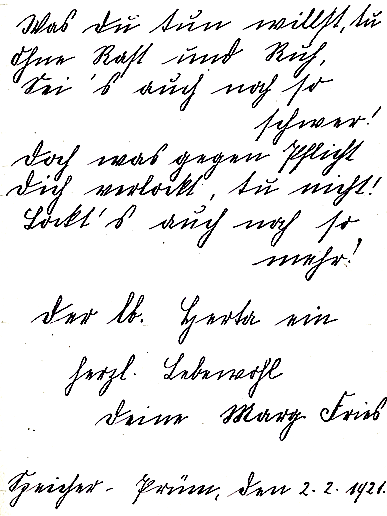 Was du tun willst, tu
Ohne Rast und Ruh,
Sei's auch noch so
schwer!
Doch was gegen Pflicht
Dich verlockt, tu nicht!
Lockt's auch noch so
mehr!
Der lb. Herta ein
herzl. Lebewohl
Deine Marg. Fries
Speicher - Prüm, den 2. 2. 1921.